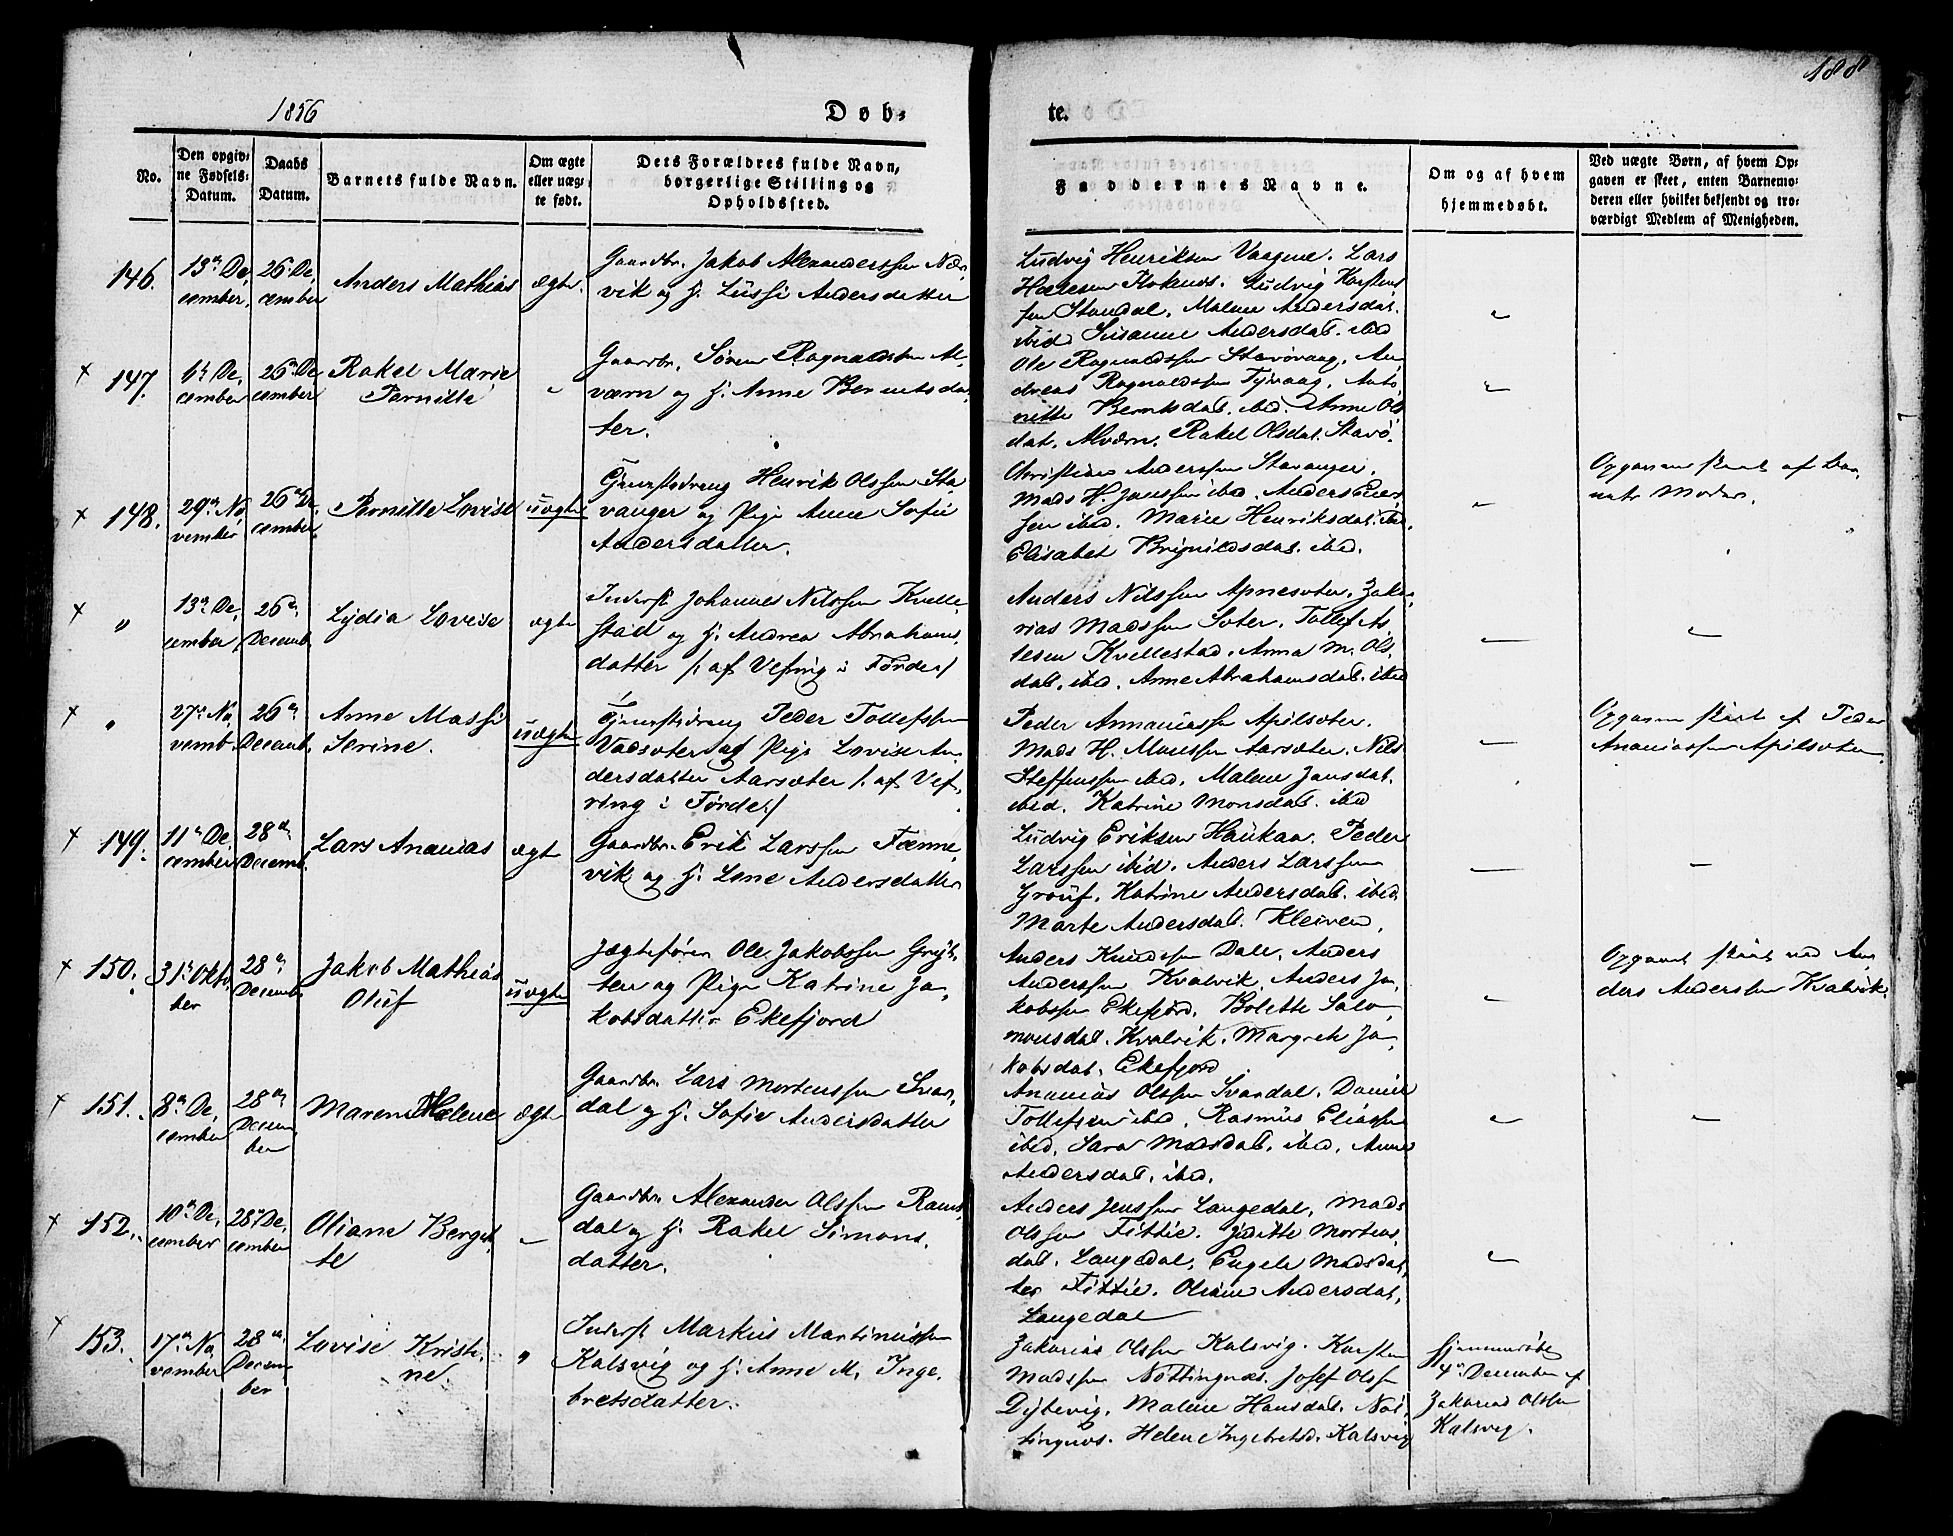 1856
Døb-
te.
188
No.
Den opgiv-
ne Fødsels-
Datum.
Daabs
Datum.
Barnets fulde Navn.
Om ægte
eller uæg-
te født.
Dets Forældres fulde Navn,
borgerlige Stilling og
Opholdssted.
Faddernes Navne.
Om og af hvem
hjemmedøbt.
Ved uægte Børn, af hvem Op-
gaven er skeet, enten Barnemo-
deren eller hvilket bekjendt og tro-
værdigt Medlem af Menigheden.
146.
13de De,
cember,
26 De,
cember
Anders Mathias
ægte.
Gaardbr. Jakob Alexanderssen Nær-
vik og H. Lussi Andersdatter
Ludvig Henriksen Vaagene. Lars
Hoknæs. Ludvig Karsten
sen Standal, Malene Andersdat.
ibid Susanne Andersdat. ibid
"
× 147.
6te De,
cember
26de De
cember
Rakel Marie
Pernille
"
Gaardbr. Søren Ragnaldsen Al-
værn og H. Anne Berntsdat
ter.
Ole Ragnaldssen Stavøvaag, An
dreas Ragnaldssen Tyvaag, Anto
nette Berntsdat. ibid. Anne Ols
dat. Alværn. Rakel Olsdat. Stavø.
"
× 148.
29de No
vember
26de De,
cember.
Pernille Lovise
uægte
Tjenestedreng Henrik Olssen Sta
vanger og Pige Anne Sofie
Andersdatter.
Christian Anderssen Stavanger.
Mads H. Janssen ibid. Anders
sen ibid. Marie Henriksdat. ibd.
Elisabet Brynildsdat. ibid.
"
Opgaven skeet af Bar
nets Moder.
× "
13de De,
cember,
26de
Decemb.
Lydia Lovise
ægte
Inderst Johannes Nilssen Kvelle-
stad og H. Andrea Abrahams,
datter /: af Vefring i Førde:/
Anders Nilssen Apnesæter. Zaka-
rias Madssen Sæter. Tollef At
lesen Kvellestad. Anna M. Ols,
dat. ibid. Anne Abrahamsdat. ibid
—
"
× "
27de No,
vemb.
26de
Decemb.
Anne Massi
Serine.
uægte
Tjenestedreng Peder Tollefssen
Vadsæter og Pige Lovise An
dersdatter Aarsæter /: af Vef,
ring i Førde:/
Peder Annaniassen Apilsæter.
Mads H. Monssen Aarsæter. Nils
Steffenssen ibid. Malene Jansdat.
ibid. Katrine Monsdat. ibid
—
Opgaven skeet af Peder
Ananiassen Apilsæter
× 149.
11te De,
cember
28de
Decemb.
Lars Ananias
ægte
Gaardbr. Erik Larssen Fænne,
vik og H. Lene Andersdatter
Ludvig Eriksen Haukaa. Peder
Larssen ibid. Anders Larssen
Grouf. Katrine Andersdat. ibid.
Marte Andersdat. Kleiven,
—
—
× 150.
31te Okto
ber
28de
Decemb
Jakob Mathias
Oluf
uægte
Jægtefører Ole Jakobssen
og Pige Katrine Ja,
kobsdatter Ekefjord
Anders Knudssen Dale, Anders
Anderssen Kvalvik. Anders Ja,
kobssen Ekefjord. Bolette Salo,
monsdat. Kvalvik. Margrete Ja,
kobsdat. Ekefjord
"
Opgavet skeet ved An,
ders Anderssen Kvalvik.
× 151.
8de De,
cember
28de
Decem
ber
Maren Helene
ægte
Gaardbr. Lars Mortenssen Svar,
dal og H. Sofie Andersdatter
Ananias Olssen Svardal, Daniel
Tollefssen ibid. Rasmus Eliassen
ibid. Sara Madsdat. ibid. Anne
Andersdat. ibid.
"
"
× 152.
10de De,
cember
28de De,
cember
Oliane Berget,
te
"
Gaardbr. Alexander Olssen Rams,
dal og H. Rakel Simons,
datter.
Anders Jenssen Langedal, Mads
Olssen Fittie. Juditte Mortens
dat. Langedal, Engele Madsdat,
ter Fittie. Oliane Andersdat,
Langedal
"
× 153.
17de No
vember
28de
Decem
ber
Lovise Kristi,
ne.
"
Inderst Markus Martinussen
Kalsvig og H. Anne M. Inge,
bretsdatter.
Zakarias Olssen Kalsvig. Karsten
Madssen Nottingnæs. Josef Olssen
Dybevig. Malene Hansdat. Not,
tingnæs. Helene Ingebretsd. Kalsvig
Hjemmedøbt
4de December af
Zakarias Olssen
Kalsvig.